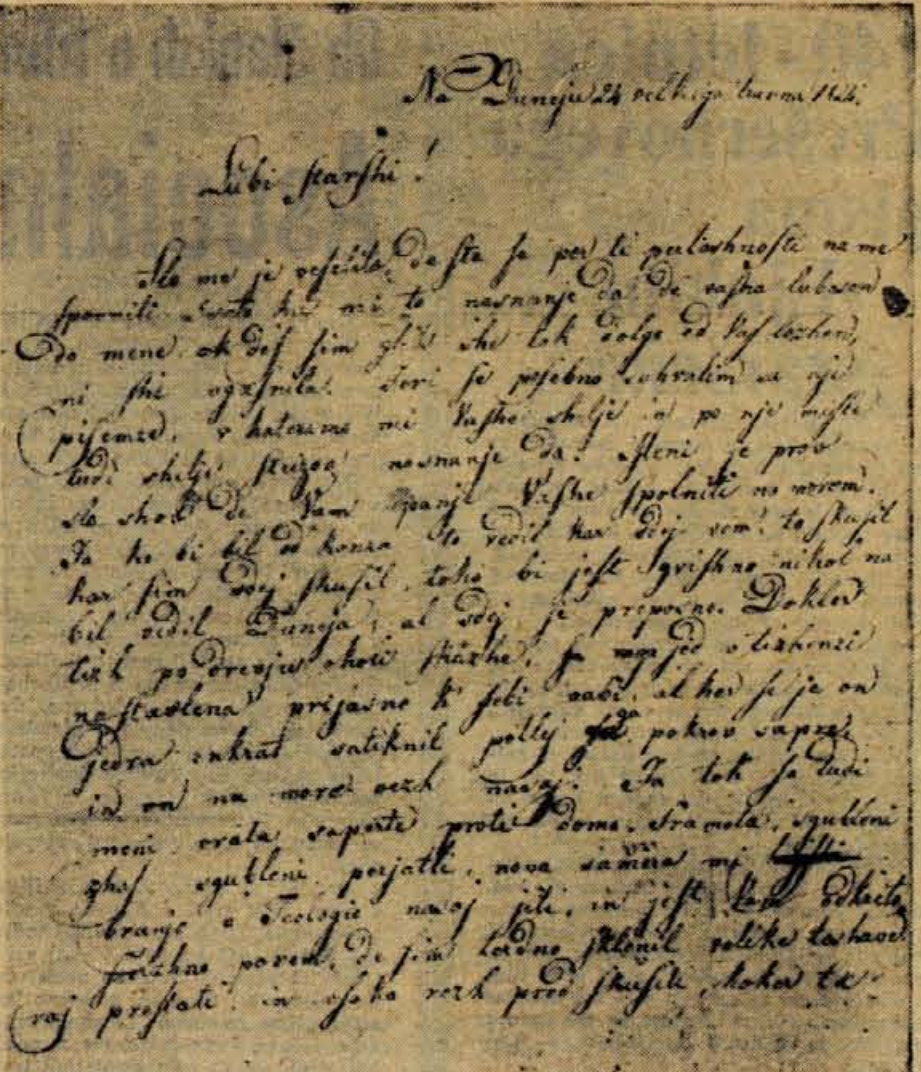 Na Duneju 24 velkiga travna 1824.
Lubi starshi!
Slo me je veselilo, de ste se per ti perloshnosti na me
spomnili. Svoto ki mi to nasnanje da de vasha lubesen
do mene ak de sim glih she tok dolgo od Vas lozhen,
ni shi vgasnila. Tori se posebno sahvalim sa nje
pisemze, v katerimo mi Vashe shelje in po nje misli
tudi shelje nasnanje da. Meni je prov
slo shov de Vam vpanje Vashe spolniti na morem.
Ja ko bi bil od konza to vedil kar sdej vem, to skusil
kar sim sdej skusil, toko bi jest gvishno nikol na
bil vidil Duneja, al sdej je preposno. Dokler
tizh po drevju okoli skazhe, ga jed v tizhenzi
nastavlena prijasno k sebi vabi, al ker se je on
jedra enkrat vateknil pollej pokrov sapre
in on na more vezh nasaj. Ja tok so tudi
meni vrata saperte proti domo. Sramota, sgubleni
zhas sgubleni perjatli, nova samera mi
branjo v Teologio nasaj jiti, in jest Vam odkrito
serzhno povem, de sim terdno sklenil velike teshave
raj prestati in vsako rezh pred skusiti, koker ta